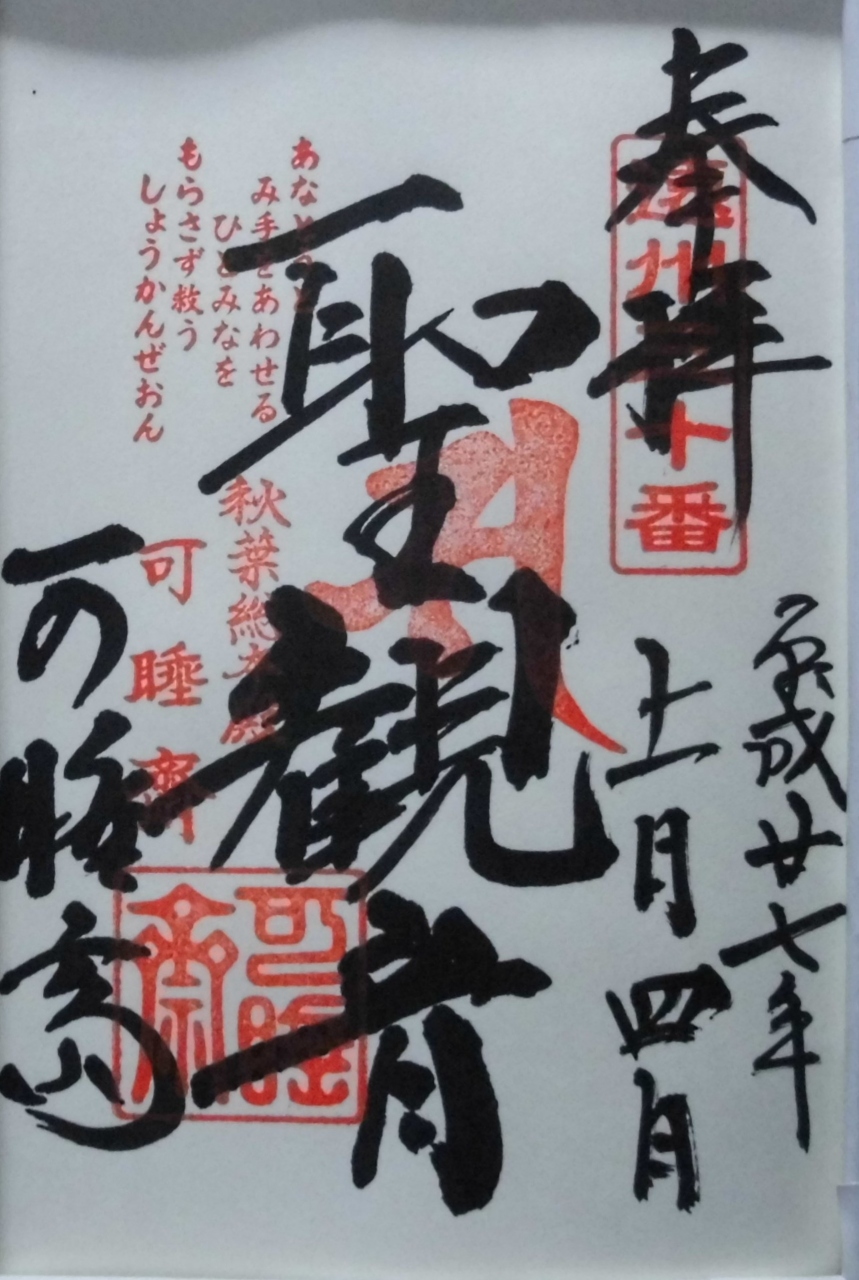 奉拝
遠州三十番
平成廿七年
十一月四日
聖観音
あなとうと
み手をあわせる
ひとみなを
もらさず救う
しょうかんぜおん
秋葉総本殿
可睡齊
可睡斎
可睡斎